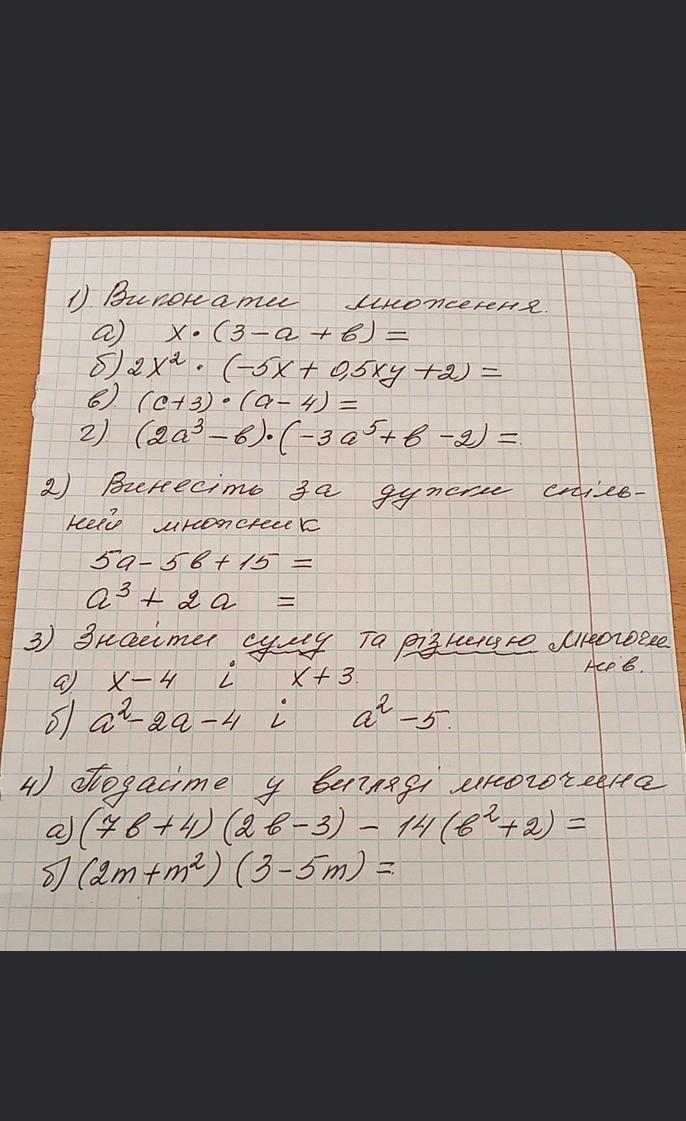 1) Виконати множення.
а) x · (3 - a + b) =
б) 2x² · (-5x + 0,5xy + 2) =
в) (c + 3) · (a - 4) =
г) (2a³ - b) · (-3a⁵ + b - 2) =
2) Винесіть за дужки спіль-
ний множник
5a - 5b + 15 =
a³ + 2a =
3) Знайти суму та різницю многочле
нів.
а) x - 4 і x + 3
б) a² - 2a - 4 і a² - 5.
4) Подайте у вигляді многочлена
а) (7b + 4) (2b - 3) - 14 (b² + 2) =
б) (2m + m²) (3 - 5m) =